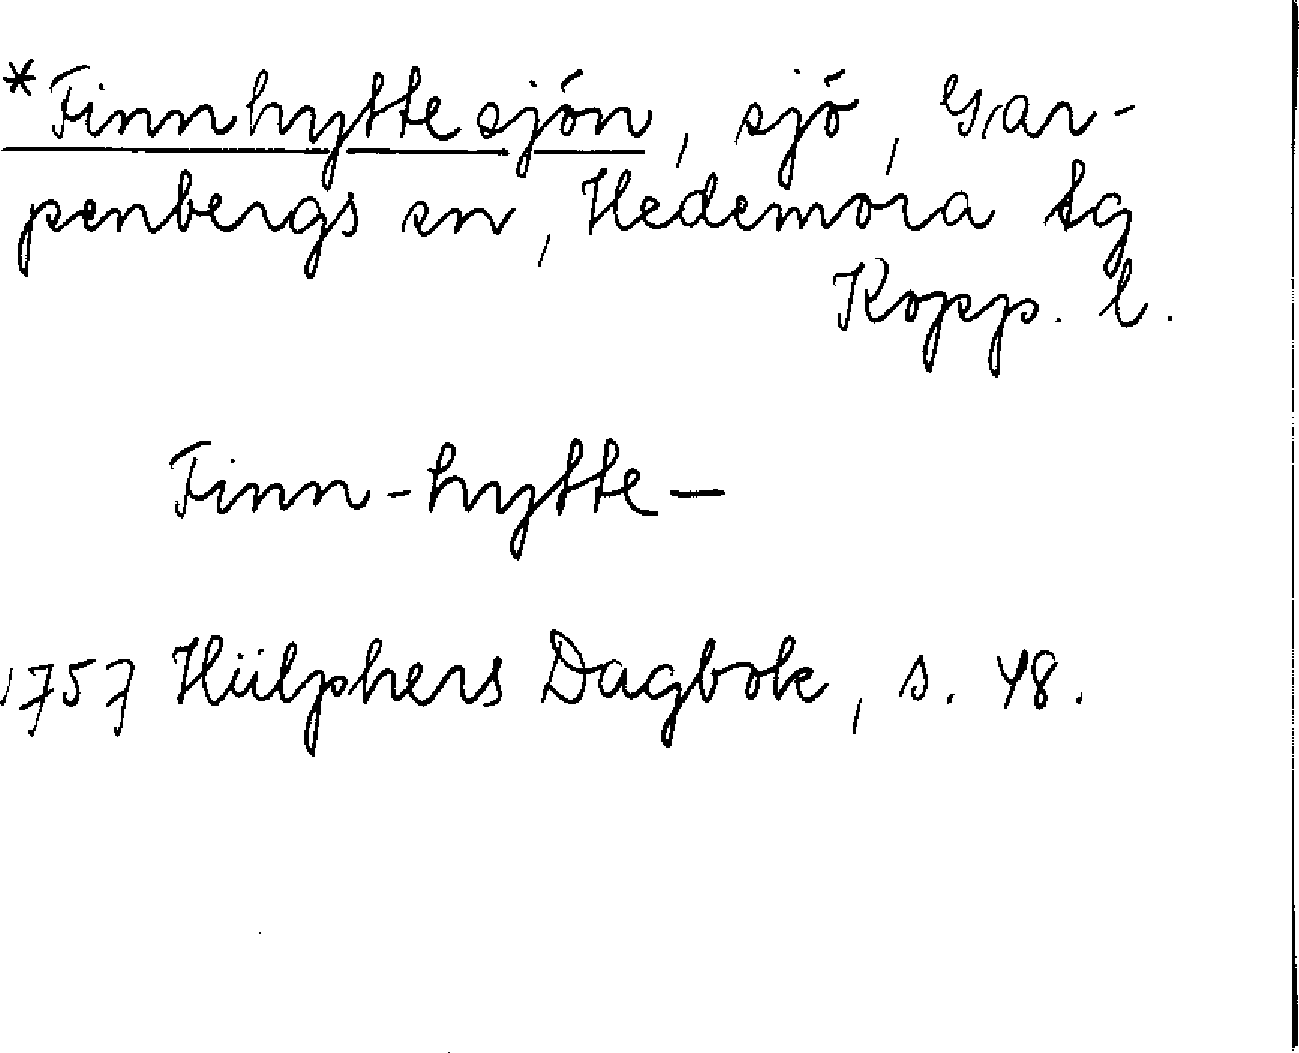 *Finnhyttesjön, sjö, Gar-
penbergs sn, Hedemora tg
Kopp. l.
Finn-hytte—
1757 Hülphers Dagbok, s. 48.